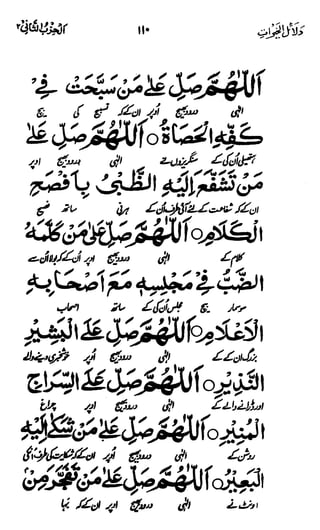 دلائل الخیرات ۱۱۰ الحزب الثانی ۲
اَللّٰهُمَّ صَلِّ عَلٰى مَنْ سَبَّحَتْ فِيْ
الٰہی درود بھیج اوپر ان کے کہ تسبیح کی بیچ
كَفِّهِ الْحَصَاةُ ○ اَللّٰهُمَّ صَلِّ عَلٰى
ہتھیلی ان کی کے سنگریزوں نے الٰہی درود بھیج اوپر
مَنْ تَشَفَّعَ اِلَيْهِ الظَّبْيُ بِاَفْصَحِ
ان کے کہ شفاعت کے لئے آئی طرف ان کے ہرنی ساتھ فصیح
الْكَلَامِ ○ اَللّٰهُمَّ صَلِّ عَلٰى مَنْ كَلَّمَهُ
کلام کے الٰہی درود بھیج اوپر ان کے کہ بولا ان سے
الضَّبُّ فِيْ مَجْلِسِهٖ مَعَ اَصْحَابِهِ
سوسمار بیچ مجلس ان کی کے ساتھ اصحاب
الْاَعْلَامِ ○ اَللّٰهُمَّ صَلِّ عَلَى الْبَشِيْرِ
بزرگ ان کے کے الٰہی درود بھیج اوپر خوشخبری دینے والے
النَّذِيْرِ ○ اَللّٰهُمَّ صَلِّ عَلَى السِّرَاجِ
اور ڈرانے والے کے الٰہی درود بھیج اوپر چراغ
الْمُنِيْرِ ○ اَللّٰهُمَّ صَلِّ عَلٰى مَنْ شَكٰى اِلَيْهِ
روشن کے الٰہی درود بھیج اوپر ان کے کہ شکایت کی طرف ان کی
الْبَعِيْرُ ○ اَللّٰهُمَّ صَلِّ عَلٰى مَنْ تَفَجَّرَ مِنْ
اونٹ نے الٰہی درود بھیج اوپر ان کے کہ بہا